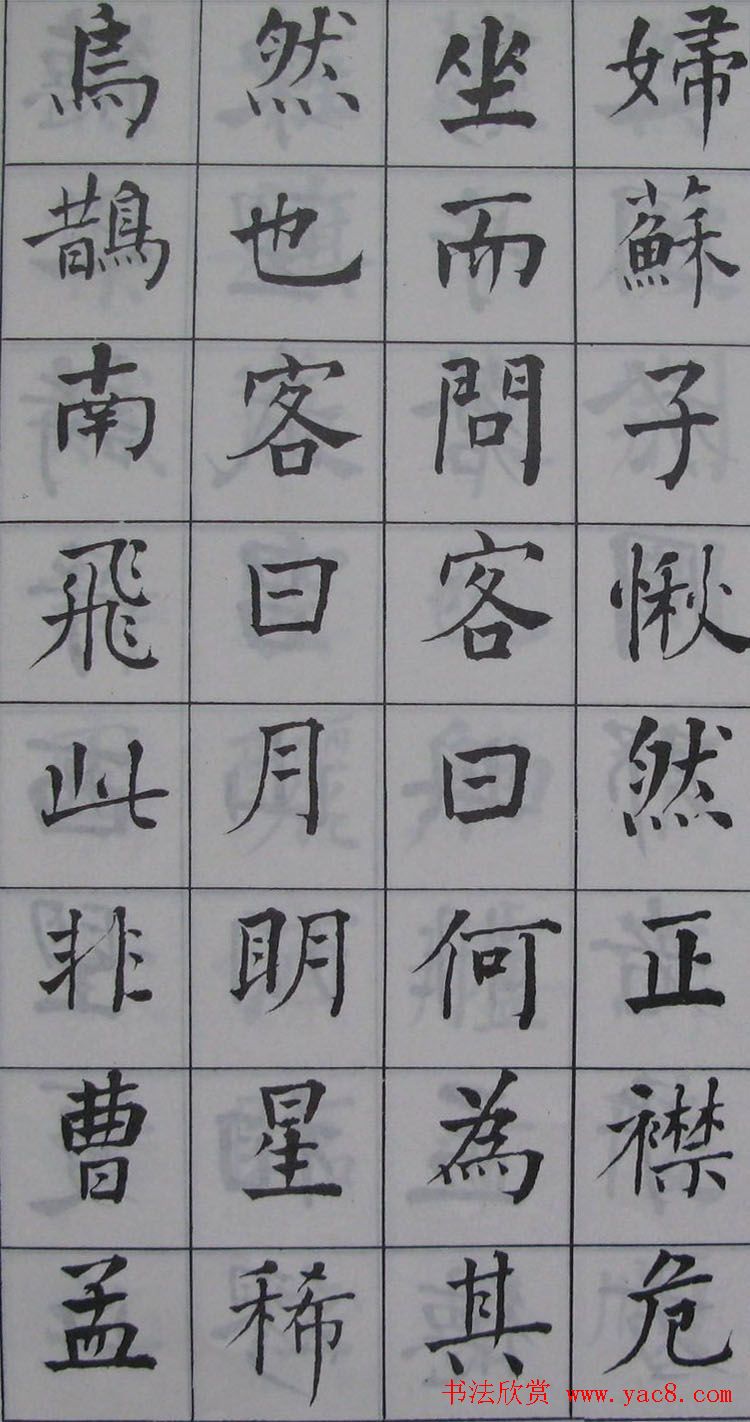 婦蘇子愀然正襟危
坐而問客曰何為其
然也客曰月明星稀
烏鵲南飛此非曹孟
书法欣赏 www.yac8.com